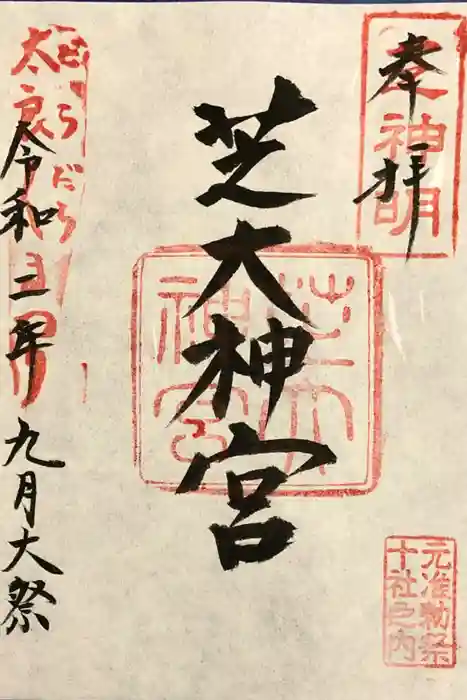 奉拝
産神明
芝大神宮
芝大神宮
元准勅祭
十社之内
だらだら
太良
令和二年九月大祭